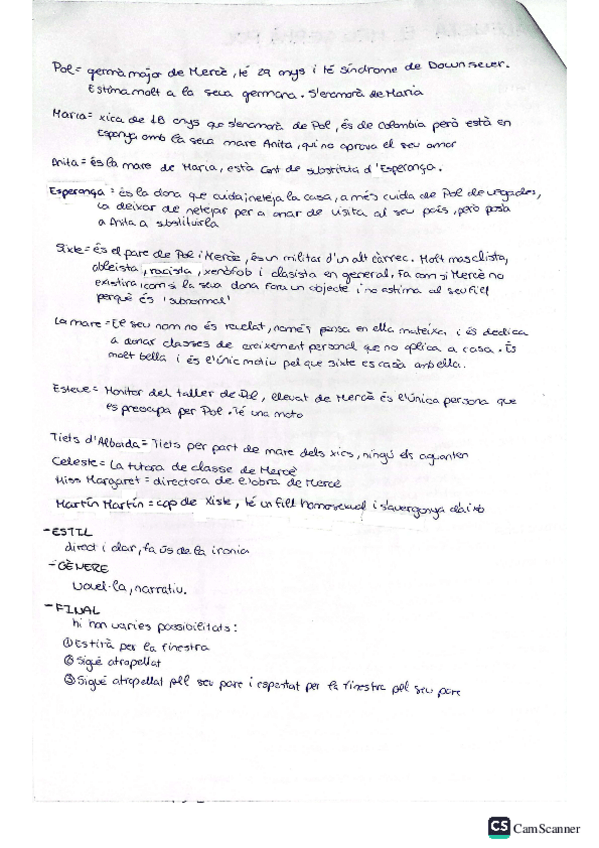 Pol = germà major de Mercè, té 29 anys i té síndrome de Down sever.
Estima molt a la seua germana. S'enamora de Maria
Maria = xica de 18 anys que s'enamora de Pol, és de Colombia però està en
Espanya amb la seua mare Anita, qui no aprova el seu amor
Anita = és la mare de Maria, està com de substituta d'Esperança.
Esperança = és la dona que cuida i neteja la casa, a més cuida de Pol de vegades,
va deixar de netejar per a anar de visita al seu país, però posà
a Anita a substituirla
Sixte = és el pare de Pol i Mercè, és un militar d'un alt càrrec. Molt masclista,
ableista, racista, xenòfob i clasista en general. Fa com si Mercè no
existira, com si la seua dona fora un objecte i no estima al seu fill
perquè és 'subnormal'
La mare = El seu nom no és revelat, només pensa en ella mateixa, i és dedica
a donar classes de creixement personal que no aplica a casa. És
molt bella i és l'únic motiu pel que sixte es casà amb ella.
Esteve = Monitor del taller de Pol, ellevat de Mercè és l'única persona que
es preocupa per Pol. Té una moto
Tiets d'Albaida = Tiets per part de mare dels xics, ningú els aguanten
Celeste = La tutora de classe de Mercè
Miss Margaret = directora de l'obra de Mercè
Martín Martín = cap de Xiste, té un fill homosexual i s'avergonya d'aixó
- ESTIL
direct i clar, fa ús de la ironia
- GÈNERE
Novel·la, narratiu.
- FINAL
hi han varies possibilitats:
① Estirà per la finestra
② Sigué atrapellat
③ Sigué atrapellat pel seu pare i espentat per la finestra pel seu pare
CS CamScanner